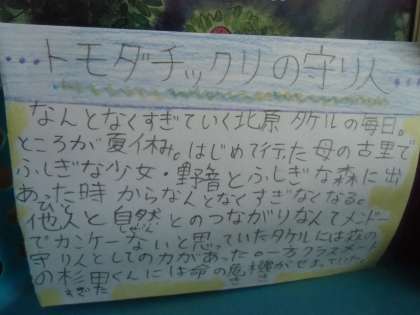 トモダチックリの守り人
なんとなくすぎていく北原タケルの毎日。
ところが夏休み。はじめて行った母の古里で
ふしぎな少女・野音とふしぎな森に出
あった時からなんとなくすぎなくなる。
ひと しぜん
他人と自然とのつながりなんてメンドー
でカンケーないと思っていたタケルには森の
守り人としての力があった。一方クラスメート
の杉田くんには命の危機がせまっていた。
すぎた きき